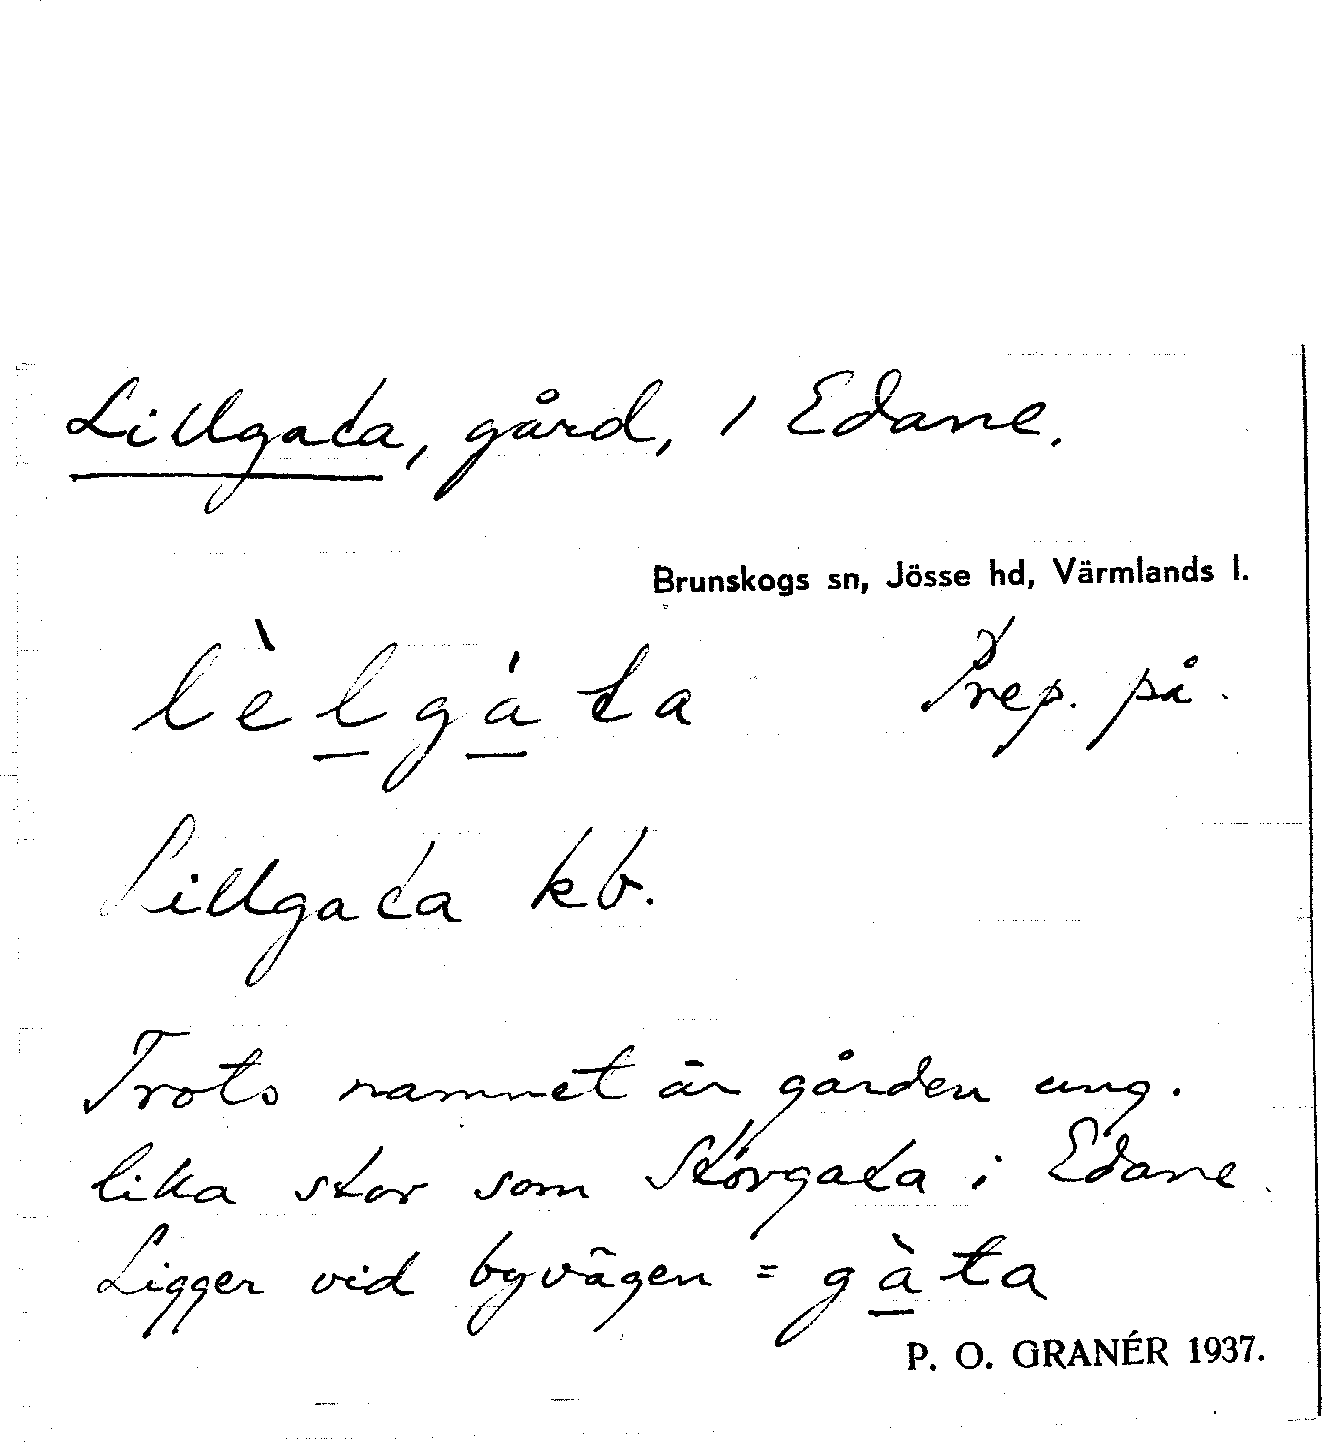 Lillgata, gård, i Edane.
Brunskogs sn, Jösse hd, Värmlands l.
lèlgáta Prep. på.
Lillgata kb.
Trots namnet är gården ung.
lika stor som Storgata i Edane.
Ligger vid byvägen = gàta
P. O. GRANÉR 1937.